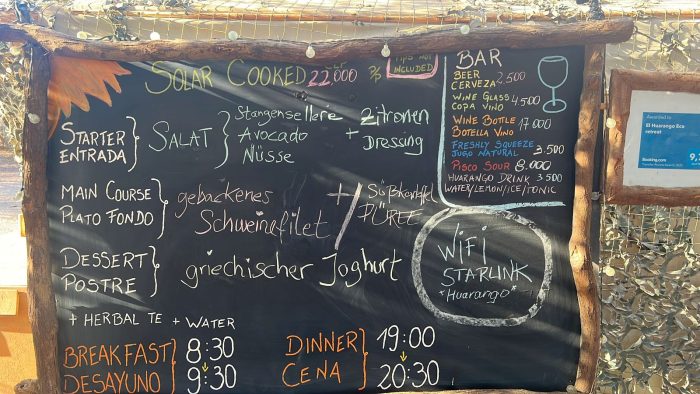 SOLAR COOKED 22,000 P/P
TIPS NOT
INCLUDED
STARTER
ENTRADA
SALAT
Stangensellerie
Avocado
Nüsse
+
Zitronen
Dressing
MAIN COURSE
PLATO FONDO
gebackenes
Schweinefilet
+
Süßkartoffel
PÜREE
DESSERT
POSTRE
griechischer Joghurt
+ HERBAL TE + WATER
BREAKFAST
DESAYUNO
8:30
9:30
DINNER
CENA
19:00
20:30
BAR
BEER
CERVEZA 2,500
WINE GLASS
COPA VINO 4,500
WINE BOTTLE
BOTELLA VINO 17.000
FRESHLY SQUEEZE
JUGO NATURAL 3,500
PISCO SOUR 8.000
HUARANGO DRINK 3500
WATER/LEMON/ICE/TONIC
WiFi
STARLINK
"Huarango"
Awarded to
El Huarango Eco
retreat
Booking.com
9,